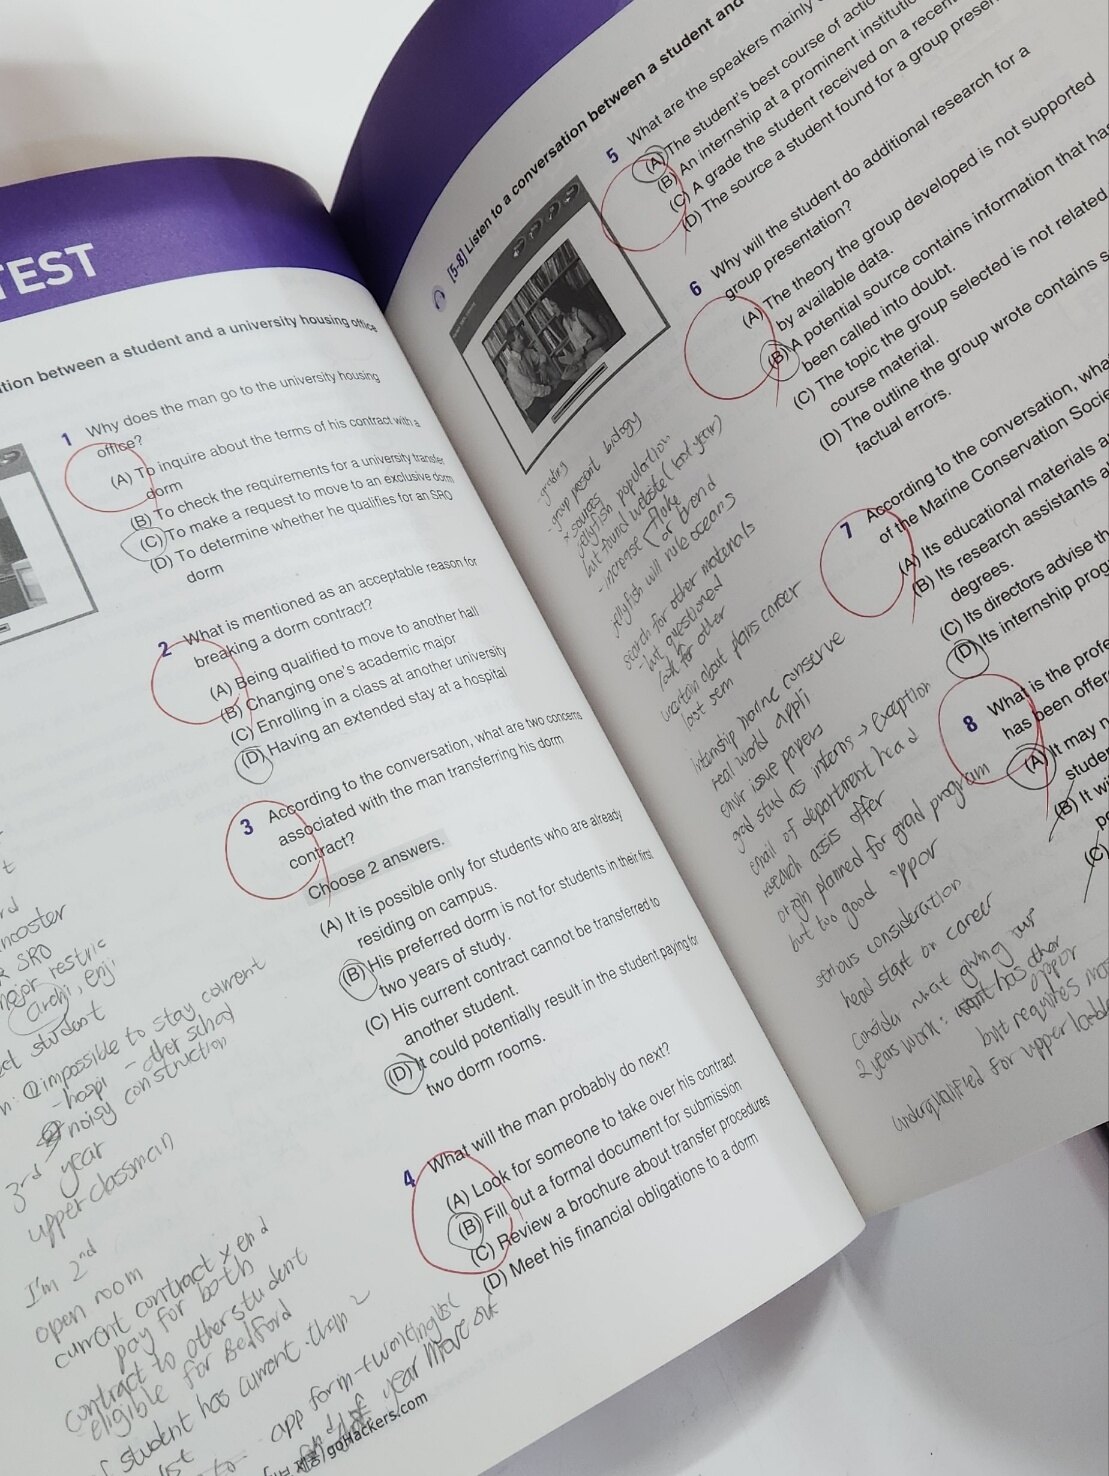 TEST
ation between a student and a university housing office
1 Why does the man go to the university housing
office?
(A) To inquire about the terms of his contract with a
dorm
(B) To check the requirements for a university transfer
(C) To make a request to move to an exclusive dorm
(D) To determine whether he qualifies for an SRO
dorm
2 What is mentioned as an acceptable reason for
breaking a dorm contract?
(A) Being qualified to move to another hall
(B) Changing one's academic major
(C) Enrolling in a class at another university
(D) Having an extended stay at a hospital
3 According to the conversation, what are two concerns
associated with the man transferring his dorm
contract?
Choose 2 answers.
(A) It is possible only for students who are already
residing on campus.
(B) His preferred dorm is not for students in their first
two years of study.
(C) His current contract cannot be transferred to
another student.
(D) It could potentially result in the student paying for
two dorm rooms.
4 What will the man probably do next?
(A) Look for someone to take over his contract
(B) Fill out a formal document for submission
(C) Review a brochure about transfer procedures
(D) Meet his financial obligations to a dorm
SRO
major restric
archi, enji
student
impossible to stay current
-hospi - other school
noisy construction
3rd year
upperclassman
I'm 2nd
open room
current contract x end
pay for both
contract to other student
eligible for Bedford
student has current than 2
app form → waiting list
year move out
goHackers.com
[5-8] Listen to a conversation between a student and
5 What are the speakers mainly
(A) The student's best course of actio
(B) An internship at a prominent institutio
(C) A grade the student received on a recent
(D) The source a student found for a group presen
6 Why will the student do additional research for a
group presentation?
(A) The theory the group developed is not supported
by available data.
(B) A potential source contains information that ha
been called into doubt.
(C) The topic the group selected is not related
course material.
(D) The outline the group wrote contains s
factual errors.
7 According to the conversation, wha
of the Marine Conservation Socie
(A) Its educational materials a
(B) Its research assistants a
degrees.
(C) Its directors advise th
(D) Its internship prog
8 What is the profe
has been offere
(A) It may n
studen
(B) It wi
po
(C)
- grading
- group present biology
x sources
jellyfish population
but found website (last year)
- increase fluke
or trend
jellyfish will rule oceans
search for other materials
- but questioned
look for other
uncertain about plans career
last sem
internship marine conserve
real world appli
envir issue papers
grad stud as interns → exception
email of department head
research assis offer
origin planned for grad program
but too good oppor
serious consideration
head start on career
consider what giving our
2 years work: want has other
oppor
but requires mos
underqualified for upper